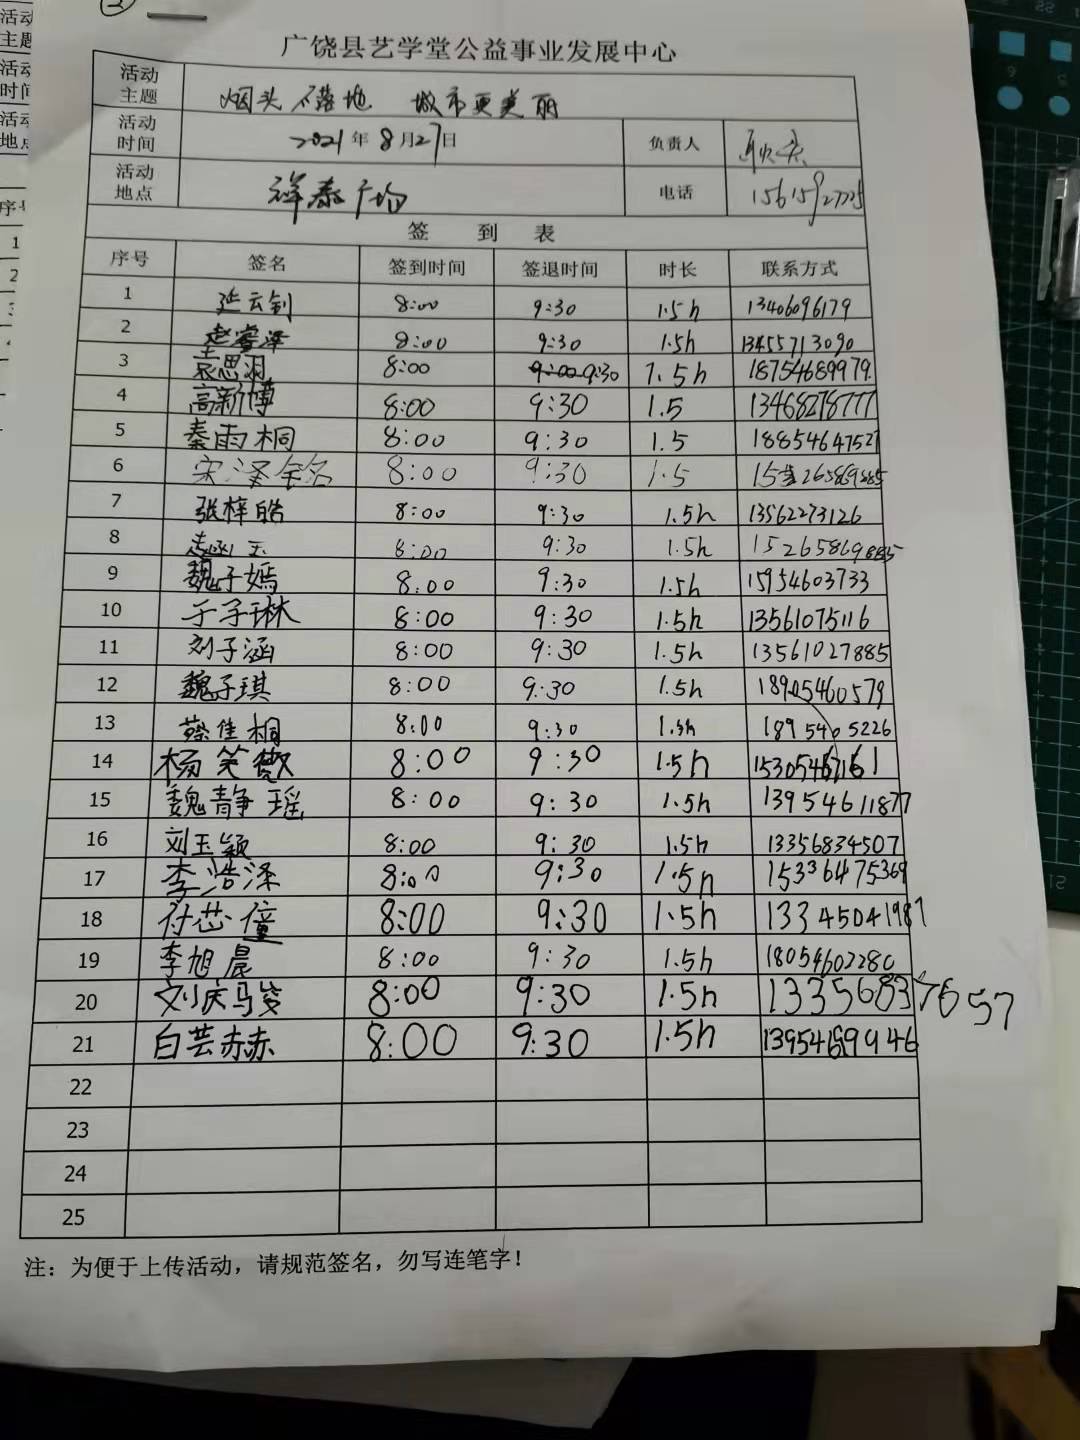 广饶县艺学堂公益事业发展中心
活动主题 烟头不落地 城市更美丽
活动时间 2021年8月27日 负责人
活动地点 祥泰广场 电话
签到表
序号 签名 签到时间 签退时间 时长 联系方式
1 延云钊 8:00 9:30 1.5h 13406096179
2 赵睿泽 8:00 9:30 1.5h 13455713090
3 袁思羽 8:00 9:30 1.5h 18754689979
4 高新博 8:00 9:30 1.5 13468278777
5 秦雨桐 8:00 9:30 1.5 18854647527
6 宋泽铭 8:00 9:30 1.5
7 张梓皓 8:00 9:30 1.5h 13562273126
8 8:00 9:30 1.5h 15265869885
9 魏子嫣 8:00 9:30 1.5h 15954603733
10 于子琳 8:00 9:30 1.5h 13561075116
11 刘子涵 8:00 9:30 1.5h 13561027885
12 魏子琪 8:00 9:30 1.5h 18905460579
13 蔡佳桐 8:00 9:30 1.5h
14 杨笑微 8:00 9:30 1.5h
15 魏静瑶 8:00 9:30 1.5h 13954611877
16 刘玉颖 8:00 9:30 1.5h 13356834507
17 李浩泽 8:00 9:30 1.5h 15336475369
18 付芯僮 8:00 9:30 1.5h 13345041987
19 李旭晨 8:00 9:30 1.5h 18054602280
20 刘庆骏 8:00 9:30 1.5h 13356837657
21 白芸赫 8:00 9:30 1.5h
22
23
24
25
注：为便于上传活动，请规范签名，勿写连笔字！